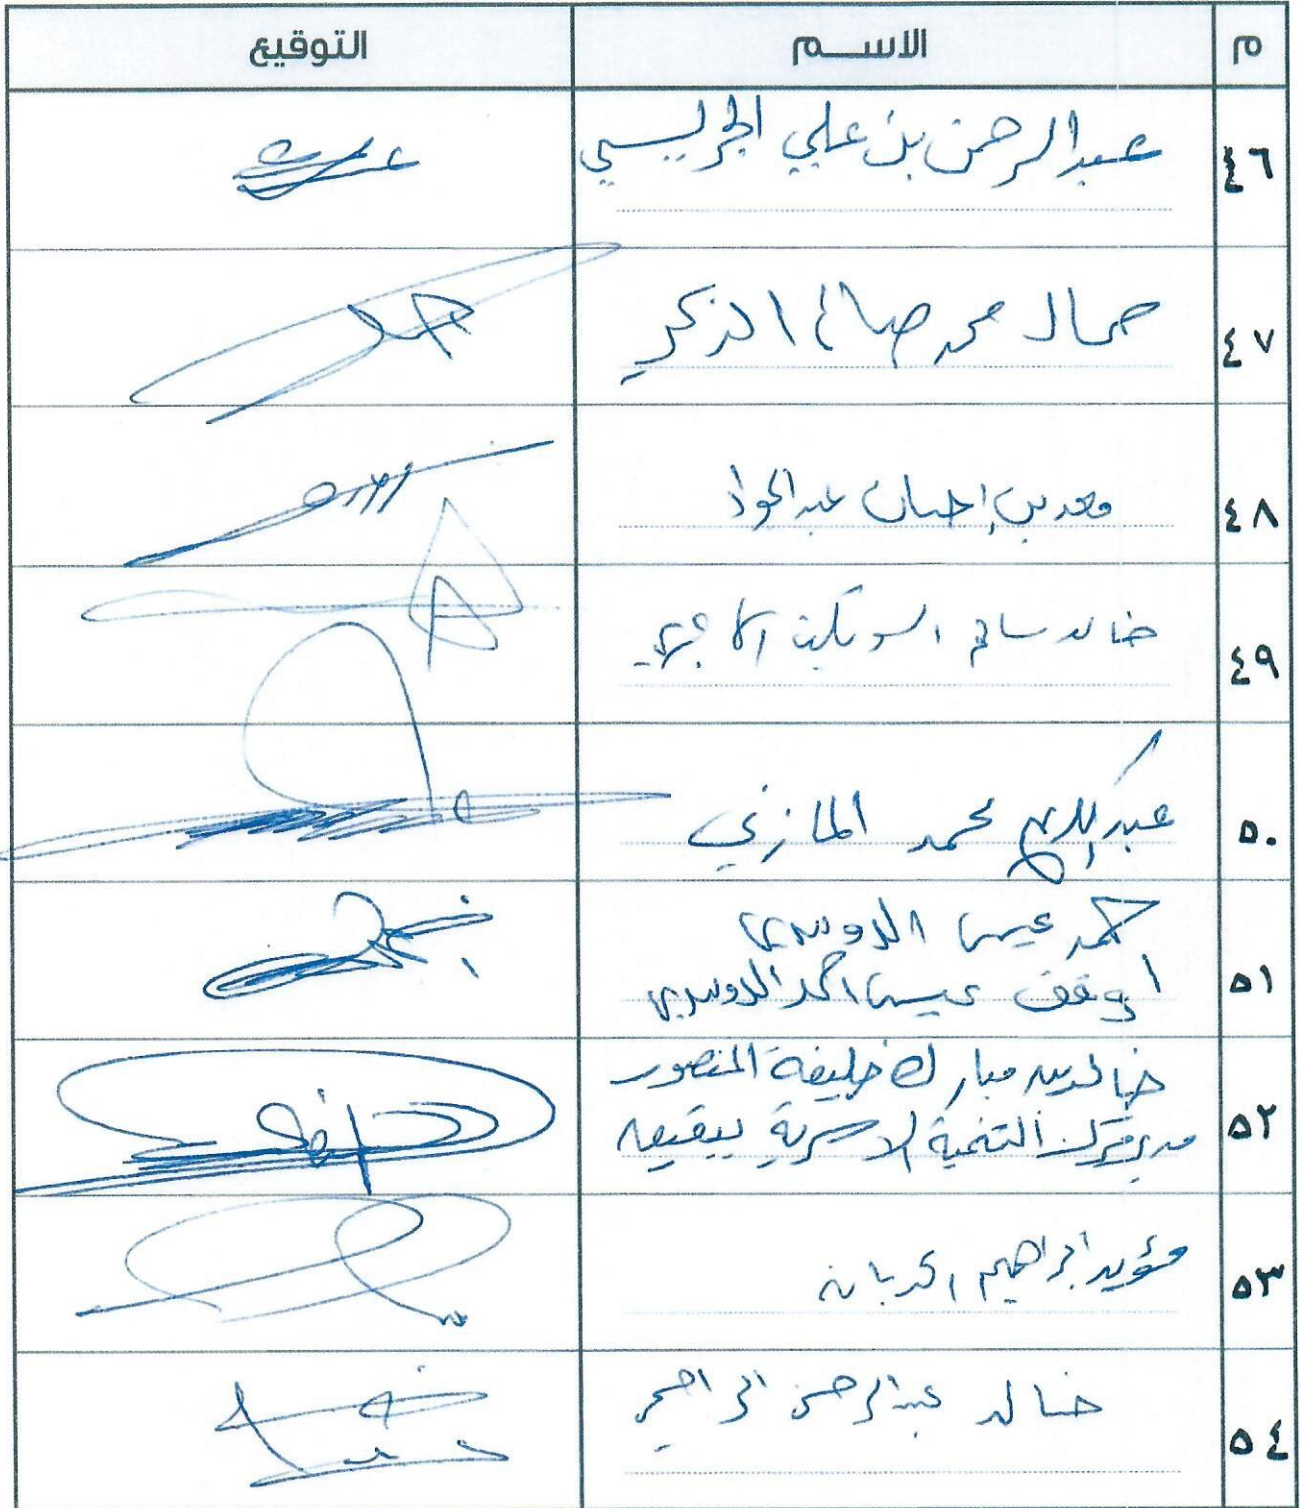 م الاسم التوقيع
٤٦ عبدالرحمن بن علي الجريسي
٤٧ جمال محمد صالح الذكير
٤٨ معد بن إحسان عبدالجواد
٤٩ خالد سالم
٥٠ عبدالكريم محمد المازني
٥١ حمد عيسى الدوسري
وقف عيسى احمد الدوسري
٥٢ خالد بن مبارك خليفة المنصور
مدير مركز التنمية الاسرية ببقيق
٥٣ مؤيد ابراهيم
٥٤ خالد عبدالرحمن الراجحي